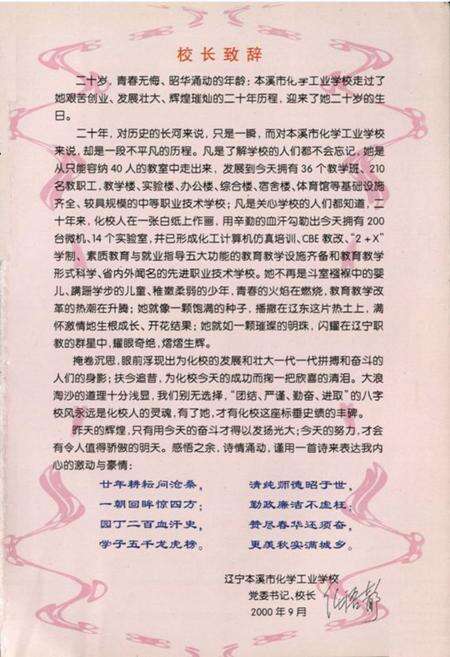 校长致辞
二十岁，青春无悔、昭华涌动的年龄：本溪市化学工业学校走过了
她艰苦创业、发展壮大、辉煌璀灿的二十年历程，迎来了她二十岁的生
日。
二十年，对历史的长河来说，只是一瞬，而对本溪市化学工业学校
来说，却是一段不平凡的历程。凡是了解学校的人们都不会忘记，她是
从只能容纳40人的教室中走出来，发展到今天拥有36个教学班、210
名教职工，教学楼、实验楼、办公楼、综合楼、宿舍楼、体育馆等基础设施
齐全、较具规模的中等职业技术学校；凡是关心学校的人们都知道，二
十年来，化校人在一张白纸上作画，用辛勤的血汗勾勒出今天拥有200
台微机、14个实验室，并已形成化工计算机仿真培训、CBE教改、“2+X”
学制、素质教育与就业指导五大功能的教育教学设施齐备和教育教学
形式科学、省内外闻名的先进职业技术学校。她不再是斗室襁褓中的婴
儿、蹒跚学步的儿童、稚嫩柔弱的少年，青春的火焰在燃烧，教育教学改
革的热潮在升腾；她就像一颗饱满的种子，播撒在辽东这片热土上，满
怀激情地生根成长、开花结果；她就如一颗璀璨的明珠，闪耀在辽宁职
教的群星中，耀眼奇绝，熠熠生辉。
掩卷沉思，眼前浮现出为化校的发展和壮大一代一代拼搏和奋斗的
人们的身影；扶今追昔，为化校今天的成功而掬一把欣喜的清泪。大浪
淘沙的道理十分浅显，我们别无选择，“团结、严谨、勤奋、进取”的八字
校风永远是化校人的灵魂，有了她，才有化校这座标垂史绩的丰碑。
昨天的辉煌，只有用今天的奋斗才得以发扬光大；今天的努力，才会
有令人值得骄傲的明天。感悟之余，诗情涌动，谨用一首诗来表达我内
心的激动与豪情：
廿年耕耘问沧桑，
清纯师德昭于世，
一朝回眸惊四方；
勤政廉洁不虚枉；
园丁二百血汗史，
赞尽春华还须奋，
学子五千龙虎榜。
更羡秋实满城乡。
辽宁本溪市化学工业学校
党委书记、校长
2000年9月